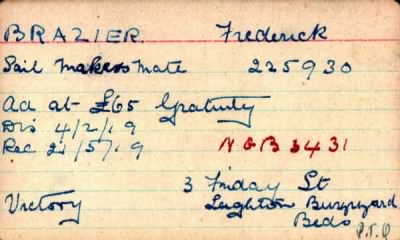 BRAZIER. Frederick
Sail Makers Mate 225930
Ad at £65 Gratuity
Dis 4/2/19
Rec 21/5/19 NGB 3431
3 Friday St
Victory Leighton Buzzard
Beds
P.T.O